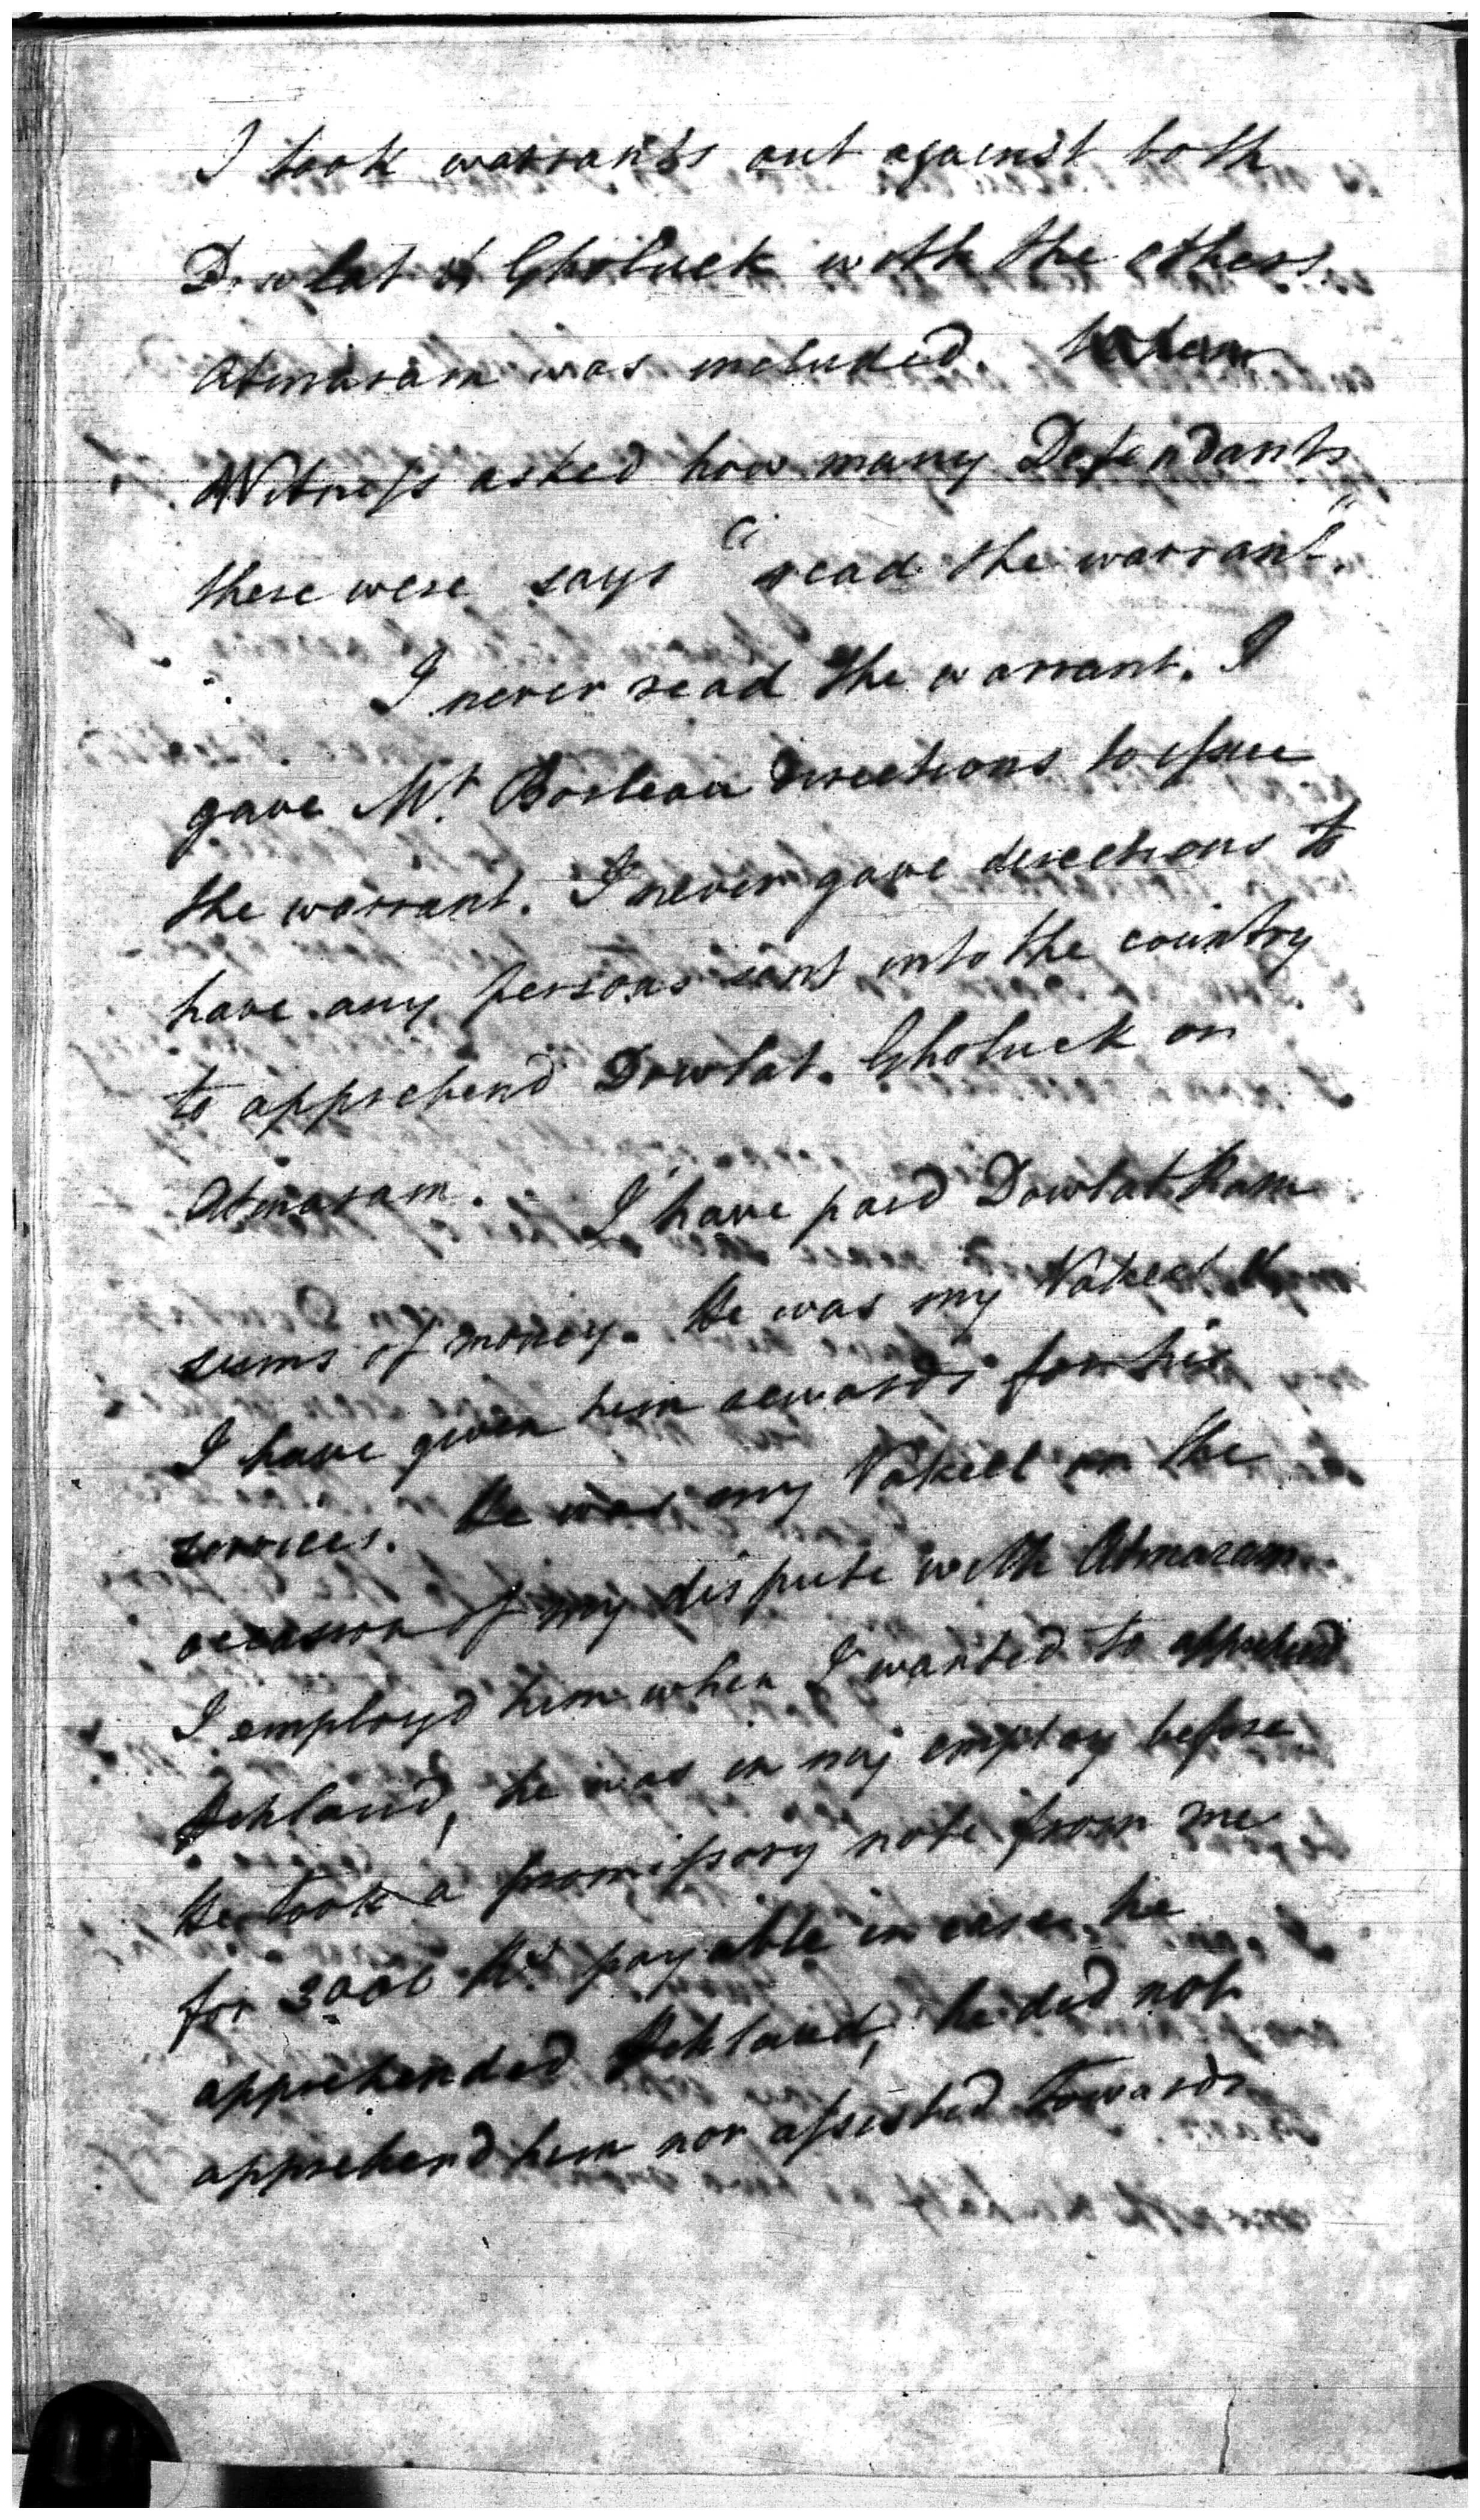 I took warrants out against both
Dowlat & Gholuck with the others
Atmaram was included.
Witness asked how many Defendants
there were says "read the warrant."
I never read the warrant. I
gave Mr. Boileau directions to issue
the warrant. I never gave directions to
have any persons sent into the country
to apprehend Dowlat. Gholuck or
Atmaram. I have paid Dowlat Ram
sums of money. He was my Vakeel &
I have given him rewards for his
services. He was my Vakeel on the
occasion of my dispute with Atmaram
I employd him when I wanted to apprehend
he was in my employ before
He took a promissory note from me
for 3000 Rs payable in case he
apprehended he did not
apprehend him nor assisted towards